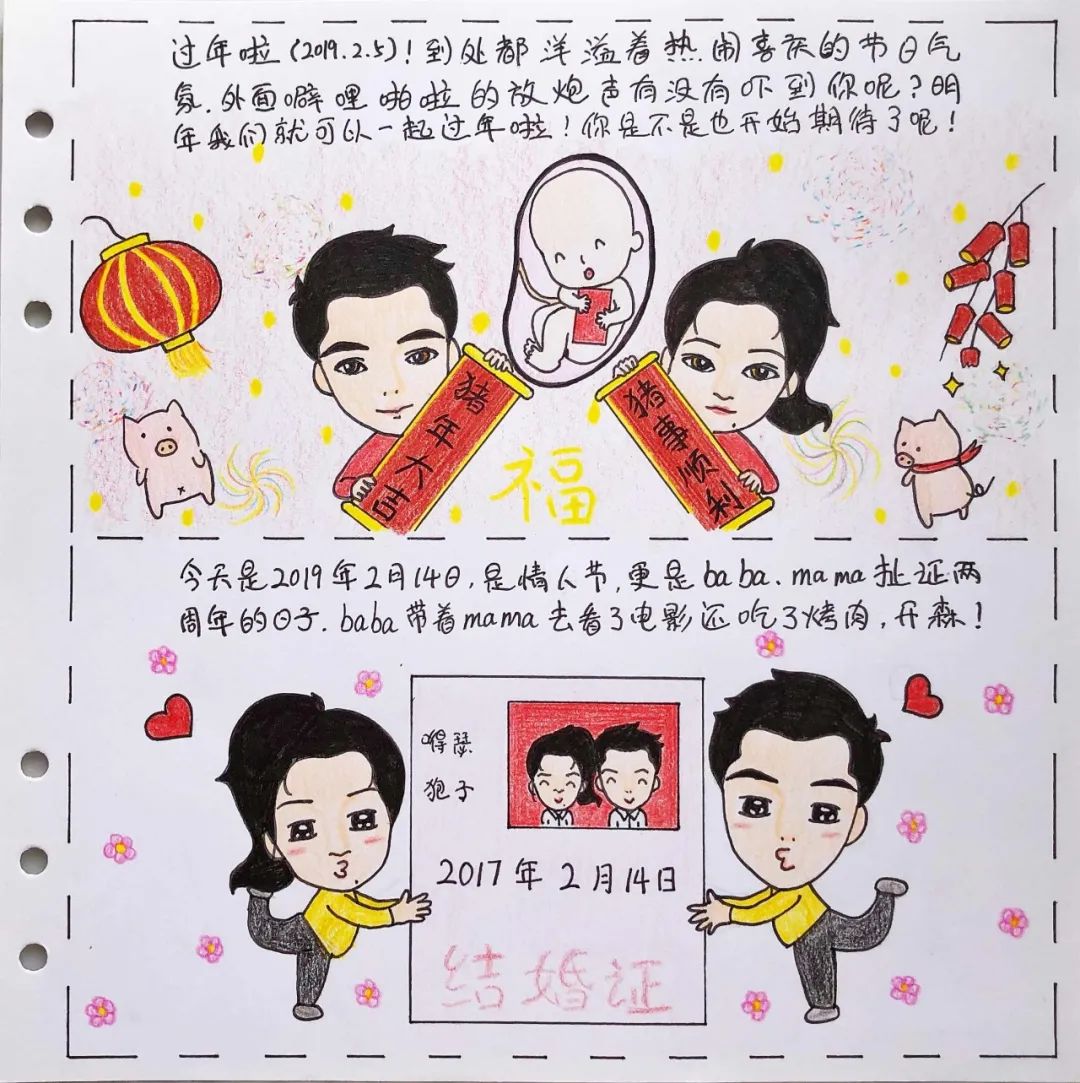 过年啦(2019.2.5)!到处都洋溢着热闹喜庆的节日气
氛.外面噼哩啪啦的放炮声有没有吓到你呢?明
年我们就可以一起过年啦!你是不是也开始期待了呢!
猪年大吉
猪事顺利
福
今天是2019年2月14日,是情人节,更是baba、mama扯证两
周年的日子.baba带着mama去看了电影还吃了烤肉,开森!
嘚瑟
狍子
2017年2月14日
结婚证